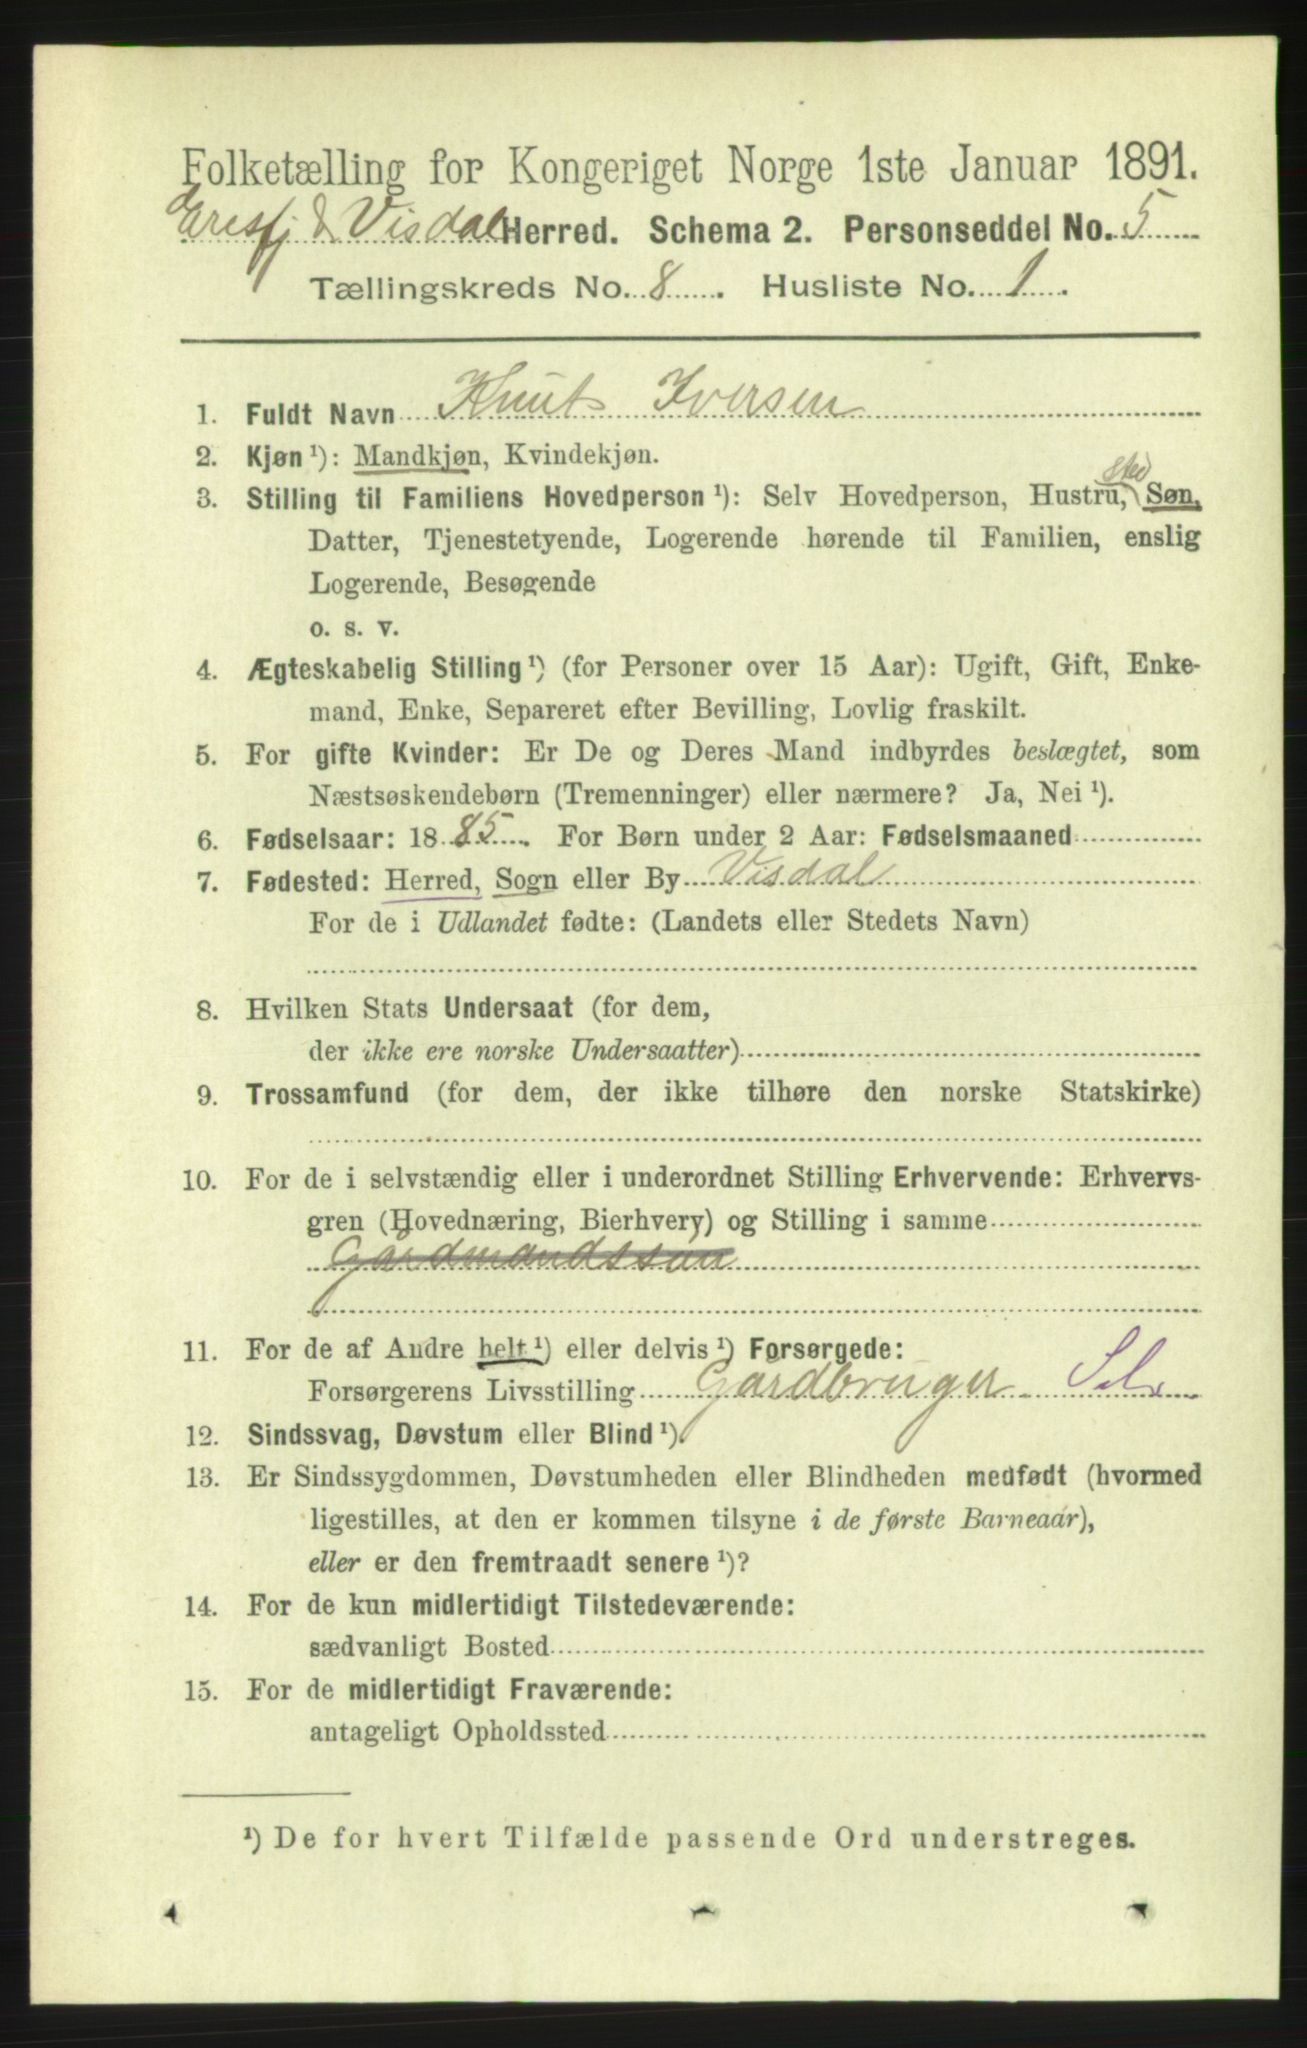 Folketælling for Kongeriget Norge 1ste Januar 1891.
Eresfj & Visdal Herred. Schema 2. Personseddel No. 5
Tællingskreds No. 8. Husliste No. 1.
1. Fuldt Navn Knut Iversen
2. Kjøn ¹): Mandkjøn, Kvindekjøn.
sted
3. Stilling til Familiens Hovedperson ¹): Selv Hovedperson, Hustru, Søn,
Datter, Tjenestetyende, Logerende hørende til Familien, enslig
Logerende, Besøgende
o. s. v.
4. Ægteskabelig Stilling ¹) (for Personer over 15 Aar): Ugift, Gift, Enke-
mand, Enke, Separeret efter Bevilling, Lovlig fraskilt.
5. For gifte Kvinder: Er De og Deres Mand indbyrdes beslægtet, som
Næstsøskendebørn (Tremenninger) eller nærmere? Ja, Nei ¹).
6. Fødselsaar: 1885. For Børn under 2 Aar: Fødselsmaaned
7. Fødested: Herred, Sogn eller By Visdal
For de i Udlandet fødte: (Landets eller Stedets Navn)
8. Hvilken Stats Undersaat (for dem,
der ikke ere norske Undersaatter)
9. Trossamfund (for dem, der ikke tilhøre den norske Statskirke)
10. For de i selvstændig eller i underordnet Stilling Erhvervende: Erhvervs-
gren (Hovednæring, Bierhverv) og Stilling i samme
Gårdmandssøn
11. For de af Andre helt ¹) eller delvis ¹) Forsørgede:
Forsørgerens Livsstilling Gårdbruger Sel.
12. Sindssvag, Døvstum eller Blind ¹).
13. Er Sindssygdommen, Døvstumheden eller Blindheden medfødt (hvormed
ligestilles, at den er kommen tilsyne i de første Barneaar),
eller er den fremtraadt senere ¹)?
14. For de kun midlertidigt Tilstedeværende:
sædvanligt Bosted
15. For de midlertidigt Fraværende:
antageligt Opholdssted
¹) De for hvert Tilfælde passende Ord understreges.